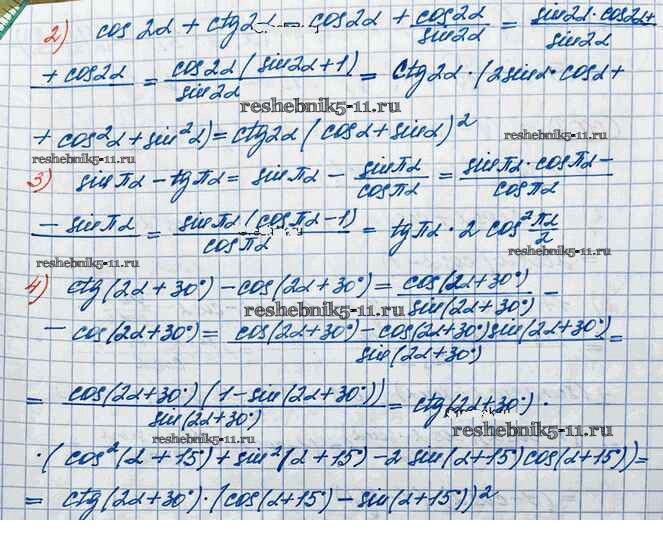 2) cos 2α + ctg 2α = cos 2α + cos2α/sin2α = sin2α·cos2α+/sin2α
+ cos2α/ = cos2α(sin2α+1)/sin2α = ctg2α·(2sinα·cosα+
reshebnik5-11.ru
+ cos²α + sin²α) = ctg2α(cosα+sinα)²
reshebnik5-11.ru reshebnik5-11.ru
3) sinπα – tgπα = sinπα – sinπα/cosπα = sinπα·cosπα–/cosπα
– sinπα/ = sinπα(cosπα–1)/cosπα = tgπα·2cos²πα/2
reshebnik5-11.ru reshebnik5-11.ru
4) ctg(2α+30°) – cos(2α+30°) = cos(2α+30°)/sin(2α+30°) –
– cos(2α+30°) = cos(2α+30°)–cos(2α+30°)sin(2α+30°)/sin(2α+30°) =
= cos(2α+30°)(1–sin(2α+30°))/sin(2α+30°) = ctg(2α+30°)·
reshebnik5-11.ru reshebnik5-11.ru
·(cos²(α+15°)+sin²(α+15°)–2sin(α+15°)cos(α+15°))=
= ctg(2α+30°)·(cos(α+15°)–sin(α+15°))²